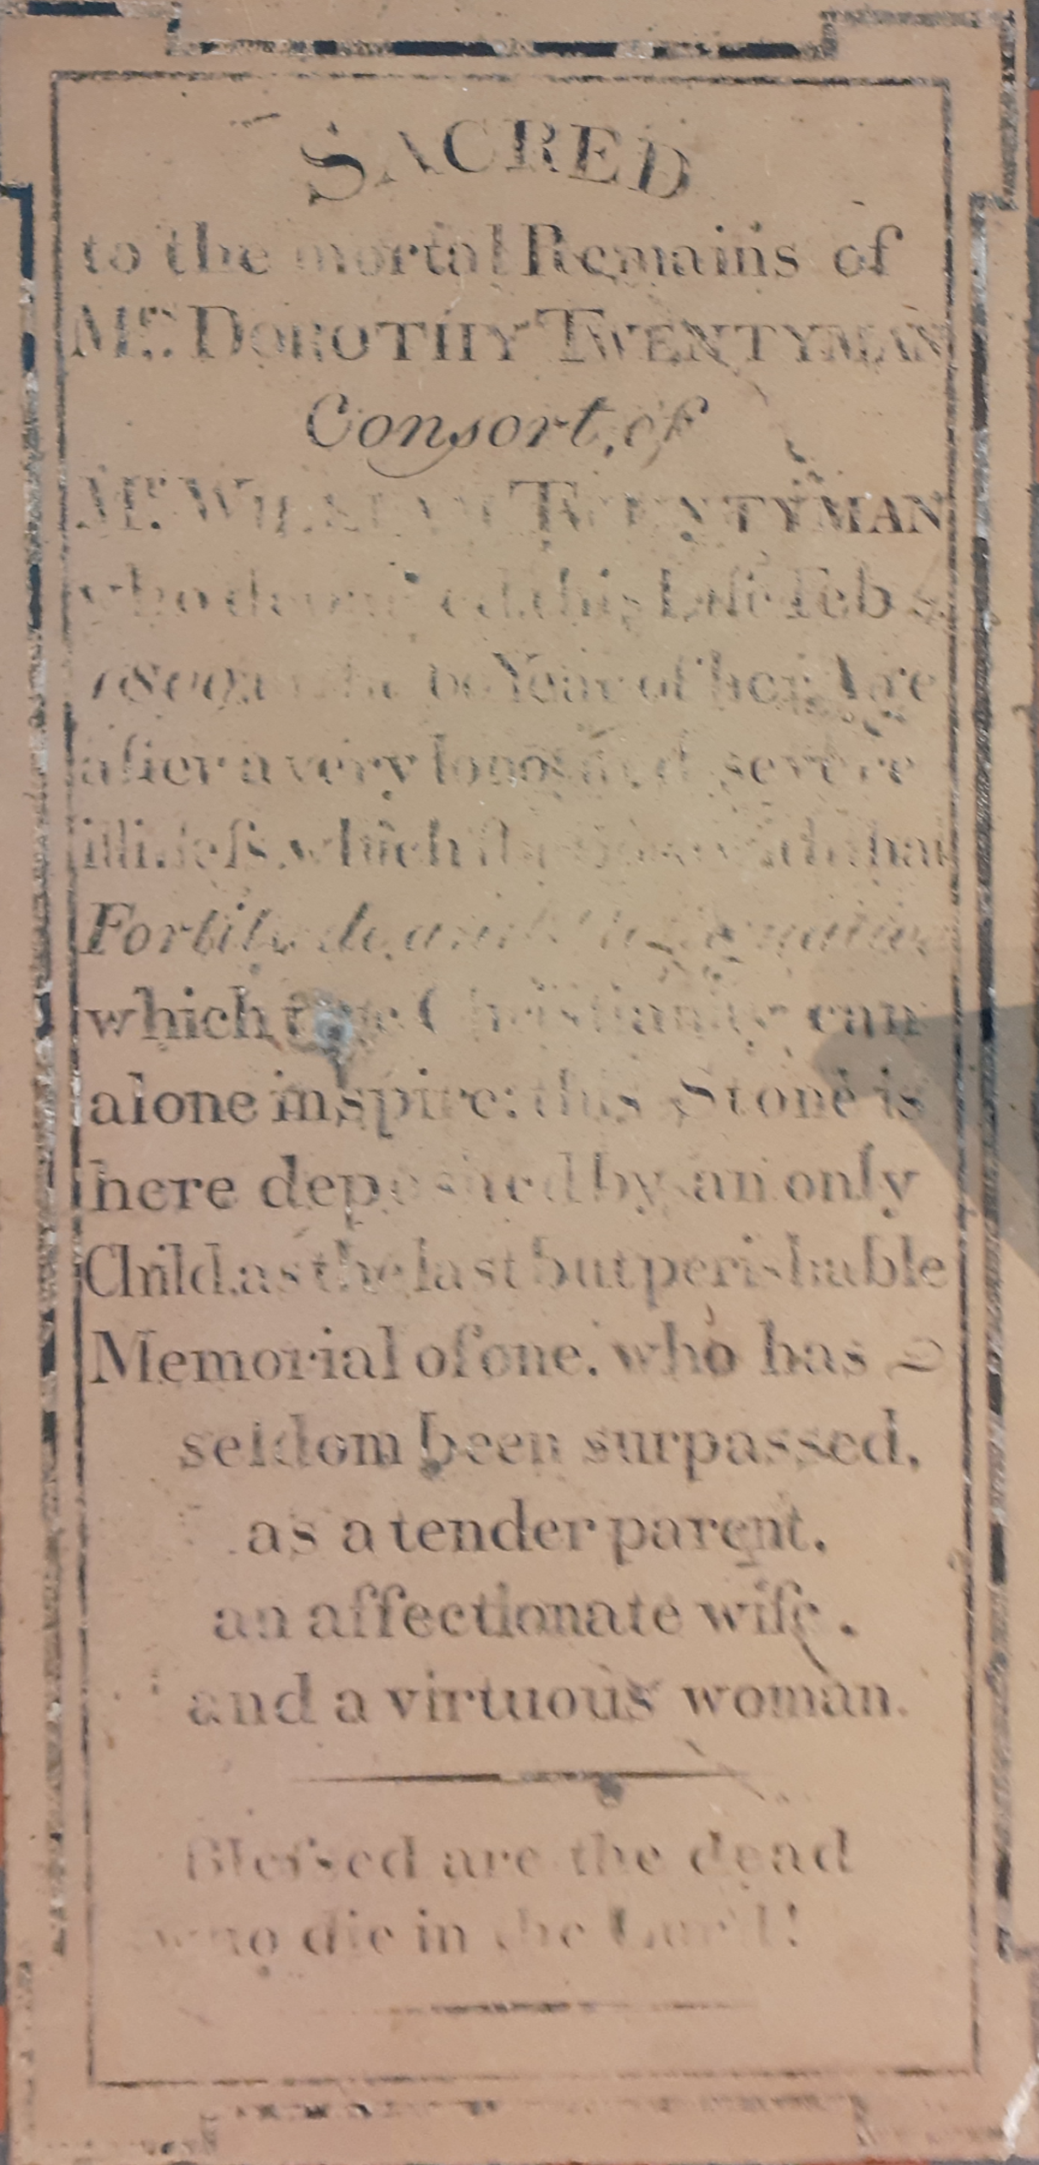 SACRED
to the mortal Remains of
Mrs. DOROTHY TWENTYMAN
Consort, of
Mr. WILLIAM TWENTYMAN
who this Life Feb
Year of her Age
after a very long and severe
illneſs, which that
Fortitude, and Resignation
which true Christianity can
alone inspire: this Stone is
here deposited by an only
Child, as the last but perishable
Memorial of one. who has
seldom been surpassed,
as a tender parent.
an affectionate wife.
and a virtuous woman.
Bleſsed are the dead
who die in the Lord!